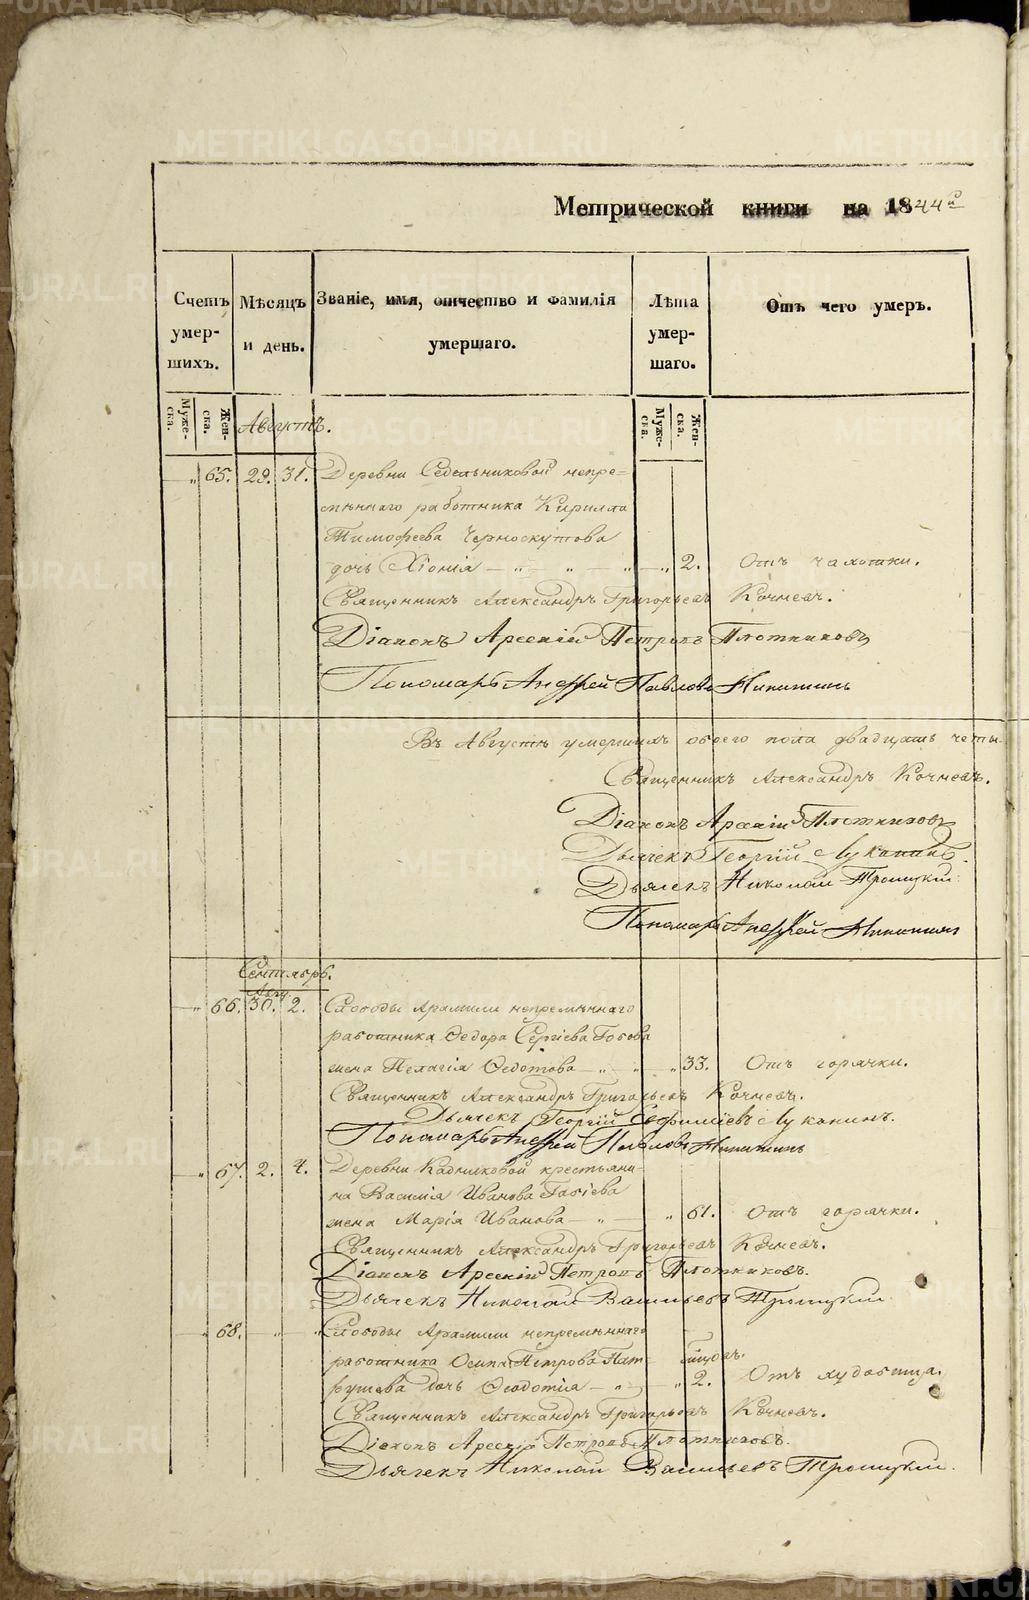 Метрической книги на 1844й
Счетъ умер-шихъ.
Мѣсяцъ и день.
Званіе, имя, отчество и фамилія умершаго.
Лѣта умер-шаго.
Отъ чего умеръ.
Муже-ска. Жен-ска. Августъ. Муже-ска. Жен-ска.
„ 65. 29. 31. Деревни Седельниковой непре=
мѣннаго работника Кирилла
Тимофеева Черноскутова
дочь Хіонія — „ — „ — „ — „ 2. Отъ чахотки.
Священникъ Александръ Григорьевъ Кочневъ.
Діаконъ Арсеній Петровъ Плотниковъ
Пономарь Андрей Павловъ Никитинъ
Въ Августѣ умершихъ обоего пола двадцать четы-
Священникъ Александръ Кочневъ.
Діаконъ Арсеній Плотниковъ
Дьячекъ Георгій Луканинъ
Дьячекъ Николай Троицкій.
Пономарь Андрей Никитинъ
Сентябрь.
Авгу.
„ 66. 30. 2. Слободы Арамили непремѣннаго
работника Федора Сергіева
жена Пелагія Федотова — „ — „ — „ 33. Отъ горячки.
Священникъ Александръ Григорьевъ Кочневъ.
Дьячекъ Георгій Луканинъ.
Пономарь Андрей Павловъ Никитинъ
„ 67. 2. 4. Деревни крестьяни-
на Василія Иванова
жена Марія Иванова — „ — „ 61. Отъ горячки.
Священникъ Александръ Григорьевъ Кочневъ.
Діаконъ Арсеній Петровъ Плотниковъ.
Дьячекъ Николай Васильевъ Троицкій.
„ 68. — „ — „ Слободы Арамили непремѣннаго
работника Осипа Петрова Пат-
рушева дочь Феодотія — „ — „ 2. Отъ
Священникъ Александръ Григорьевъ Кочневъ.
Діаконъ Арсеній Петровъ Плотниковъ.
Дьячекъ Николай Васильевъ Троицкій.
METRIKI.GASO-URAL.RU